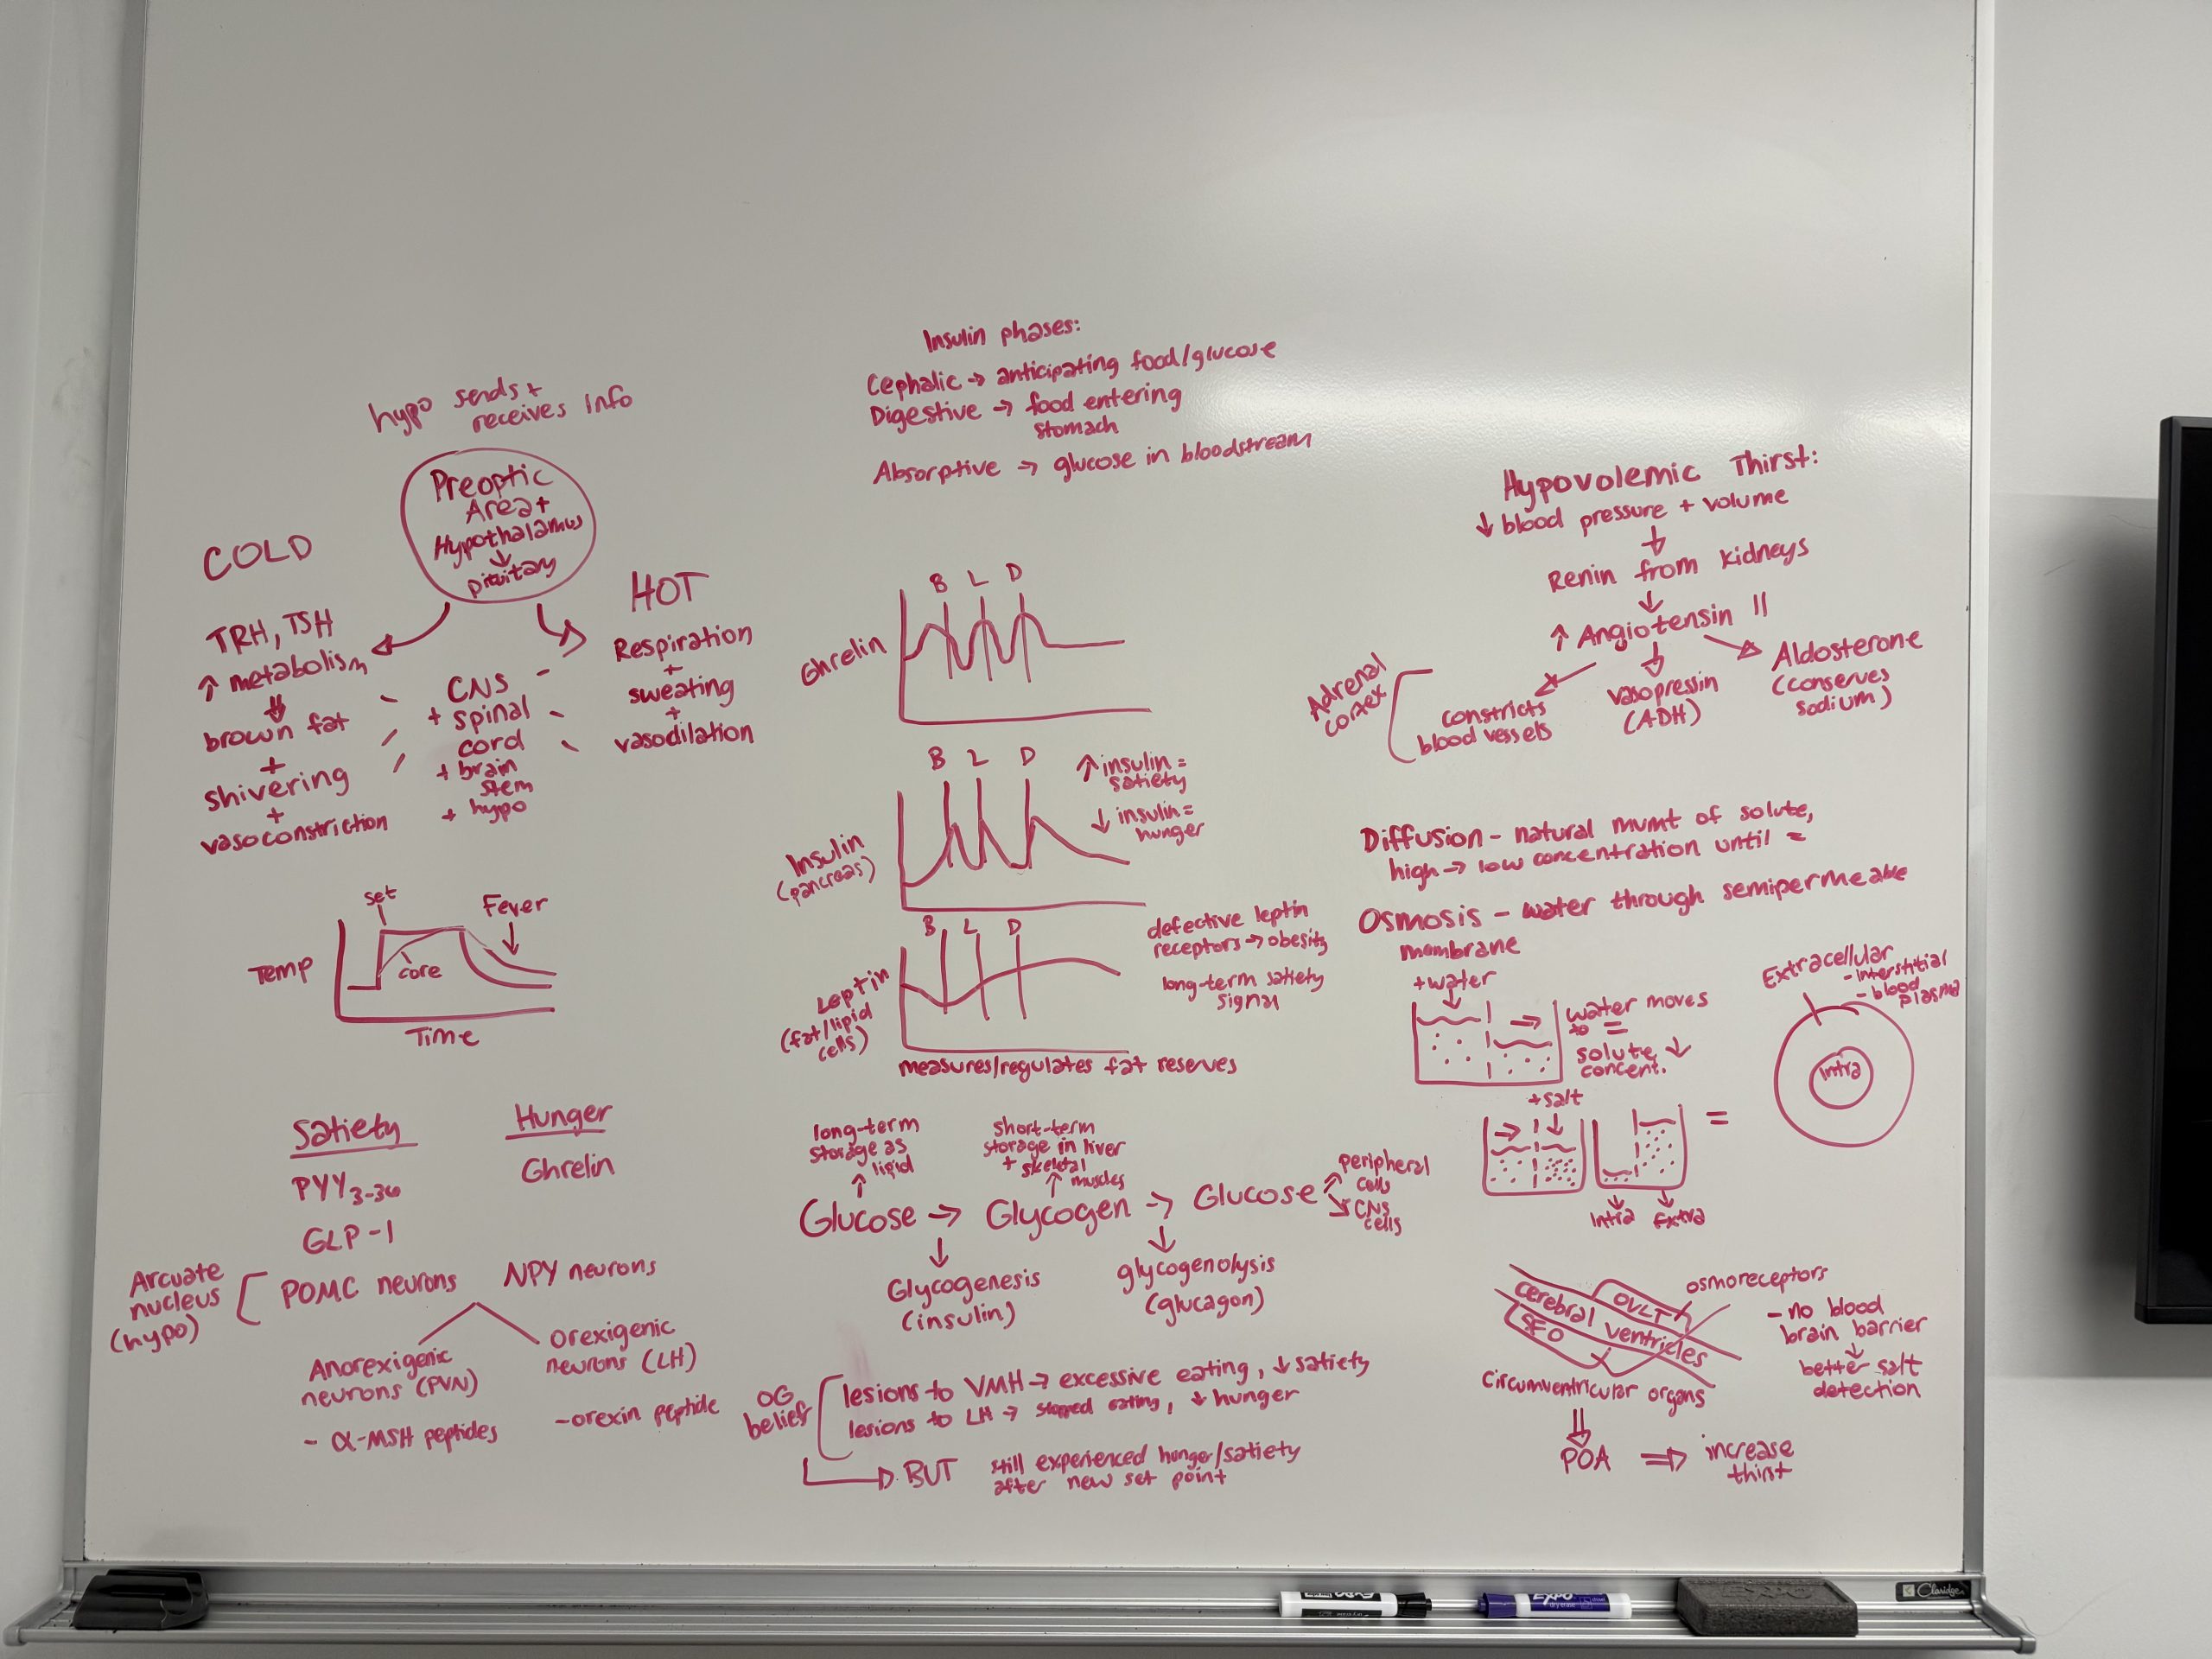 hypo sends +
receives info
Preoptic
Area +
Hypothalamus
↓
pituitary
COLD
TRH, TSH
↑ metabolism
⇓
brown fat
+
shivering
+
vasoconstriction
CNS
+ spinal
cord
+ brain
stem
+ hypo
HOT
Respiration
+
sweating
+
vasodilation
set
Fever
Temp
core
Time
Satiety
PYY3-36
GLP-1
Hunger
Ghrelin
Arcuate
nucleus
(hypo)
POMC neurons
NPY neurons
Anorexigenic
neurons (PVN)
- α-MSH peptides
Orexigenic
neurons (LH)
-orexin peptide
Insulin phases:
Cephalic → anticipating food/glucose
Digestive → food entering
stomach
Absorptive → glucose in bloodstream
B L D
Ghrelin
B L D
Insulin
(pancreas)
↑ insulin =
satiety
↓ insulin =
hunger
B L D
Leptin
(fat/lipid
cells)
defective leptin
receptors → obesity
long-term satiety
signal
measures/regulates fat reserves
long-term
storage as
lipid
short-term
storage in liver
+ skeletal
muscles
Glucose → Glycogen → Glucose
peripheral
cells
CNS
cells
Glycogenesis
(insulin)
glycogenolysis
(glucagon)
OG
belief
lesions to VMH → excessive eating, ↓ satiety
lesions to LH → stopped eating, ↓ hunger
BUT
still experienced hunger/satiety
after new set point
Hypovolemic Thirst:
↓ blood pressure + volume
↓
Renin from kidneys
↓
↑ Angiotensin II
Adrenal
cortex
constricts
blood vessels
vasopressin
(ADH)
Aldosterone
(conserves
sodium)
Diffusion - natural mvmt of solute,
high → low concentration until =
Osmosis - water through semipermeable
membrane
+water
water moves
to =
solute ↓
concent.
Extracellular
- interstitial
- blood
plasma
Intra
+salt
=
Intra
Extra
OVLT
cerebral ventricles
SFO
osmoreceptors
- no blood
brain barrier
↓
better salt
detection
Circumventricular organs
⇓
POA ⇒ increase
thirst
EXPO
EXPO
Claridge